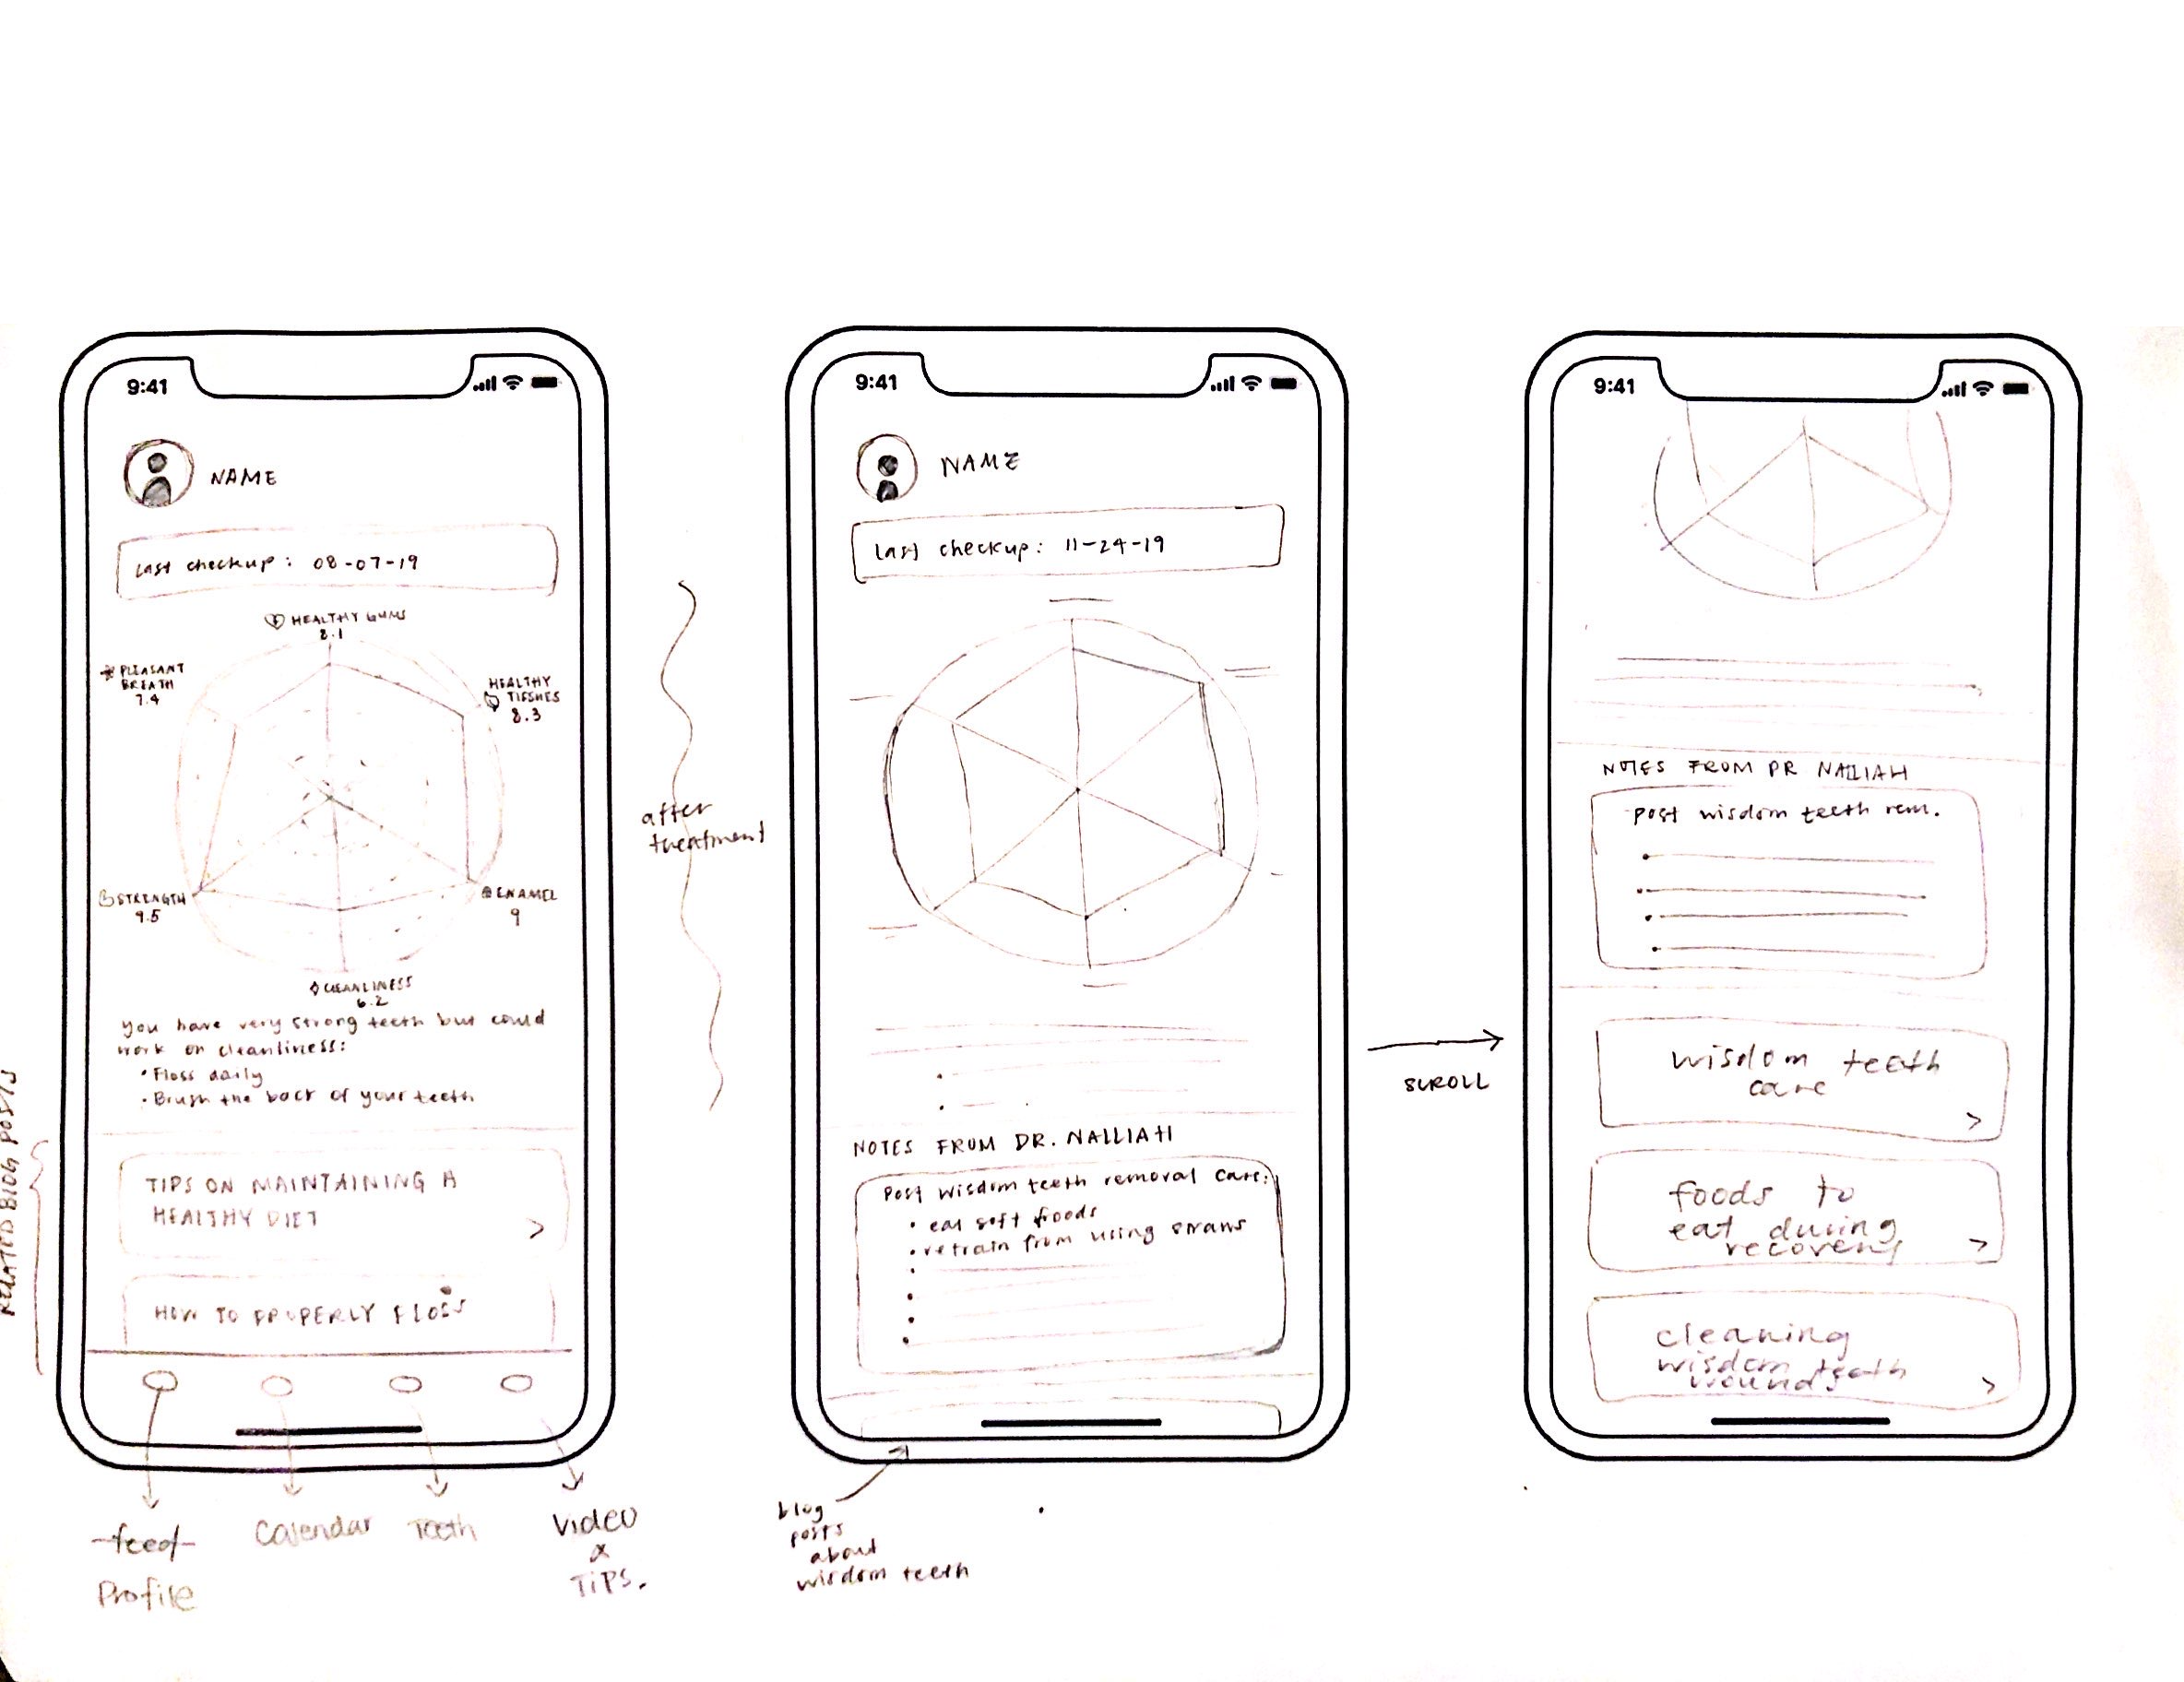 9:41
NAME
Last checkup: 08-07-19
HEALTHY GUMS
8.1
PLEASANT
BREATH
7.4
HEALTHY
TISSHES
8.3
STRENGTH
9.5
ENAMEL
9
CLEANLINESS
6.2
you have very strong teeth but could
work on cleanliness:
• Floss daily
• Brush the back of your teeth
RELATED BLOG POSTS
TIPS ON MAINTAINING A
HEALTHY DIET
>
HOW TO PROPERLY FLOSS
feed
Profile
Calendar
Teeth
Video
&
TiPS.
after
treatment
9:41
NAME
Last checkup: 11-24-19
NOTES FROM DR. NALLIAH
Post wisdom teeth removal care:
• eat soft foods
• refrain from using straws
blog
posts
about
wisdom teeth
SCROLL
9:41
NOTES FROM DR NALLIAH
Post wisdom teeth rem.
wisdom teeth
care
>
foods to
eat during
recovery
>
cleaning
wisdom teeth
wounds
>